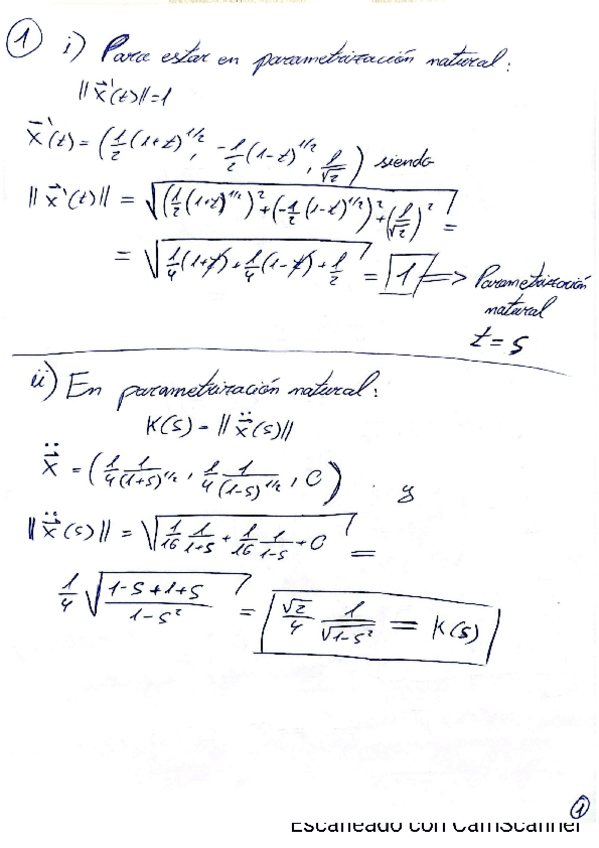 1 i) Para estar en parametrización natural:
||x⃗'(t)||=1
x⃗'(t) = (1/2 (1+t)^1/2, -1/2 (1-t)^1/2, 1/√2) siendo
||x⃗'(t)|| = √((1/2 (1+t)^1/2)² + (-1/2 (1-t)^1/2)² + (1/√2)²) =
= √(1/4 (1+t) + 1/4 (1-t) + 1/2) = 1 => Parametrización
natural
t = s
ii) En parametrización natural:
K(s) = ||ẍ(s)||
ẍ = (1/4 1/(1+s)^1/2, 1/4 1/(1-s)^1/2, 0) y
||ẍ(s)|| = √(1/16 1/(1+s) + 1/16 1/(1-s) + 0) =
1/4 √((1-s+1+s)/(1-s²)) = √2/4 1/√(1-s²) = K(s)
1
Escaneado con CamScanner